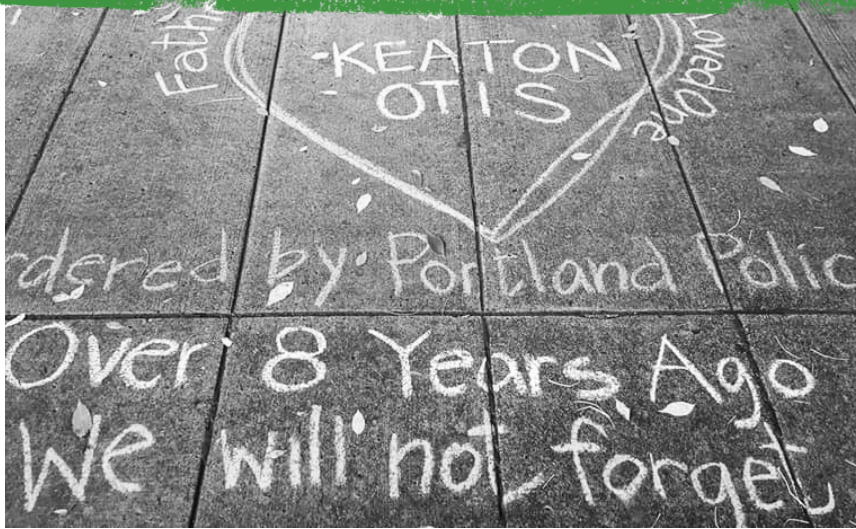 Fath
KEATON
OTIS
Loved One
rdered by Portland Polic
Over 8 Years Ago
We will not forget